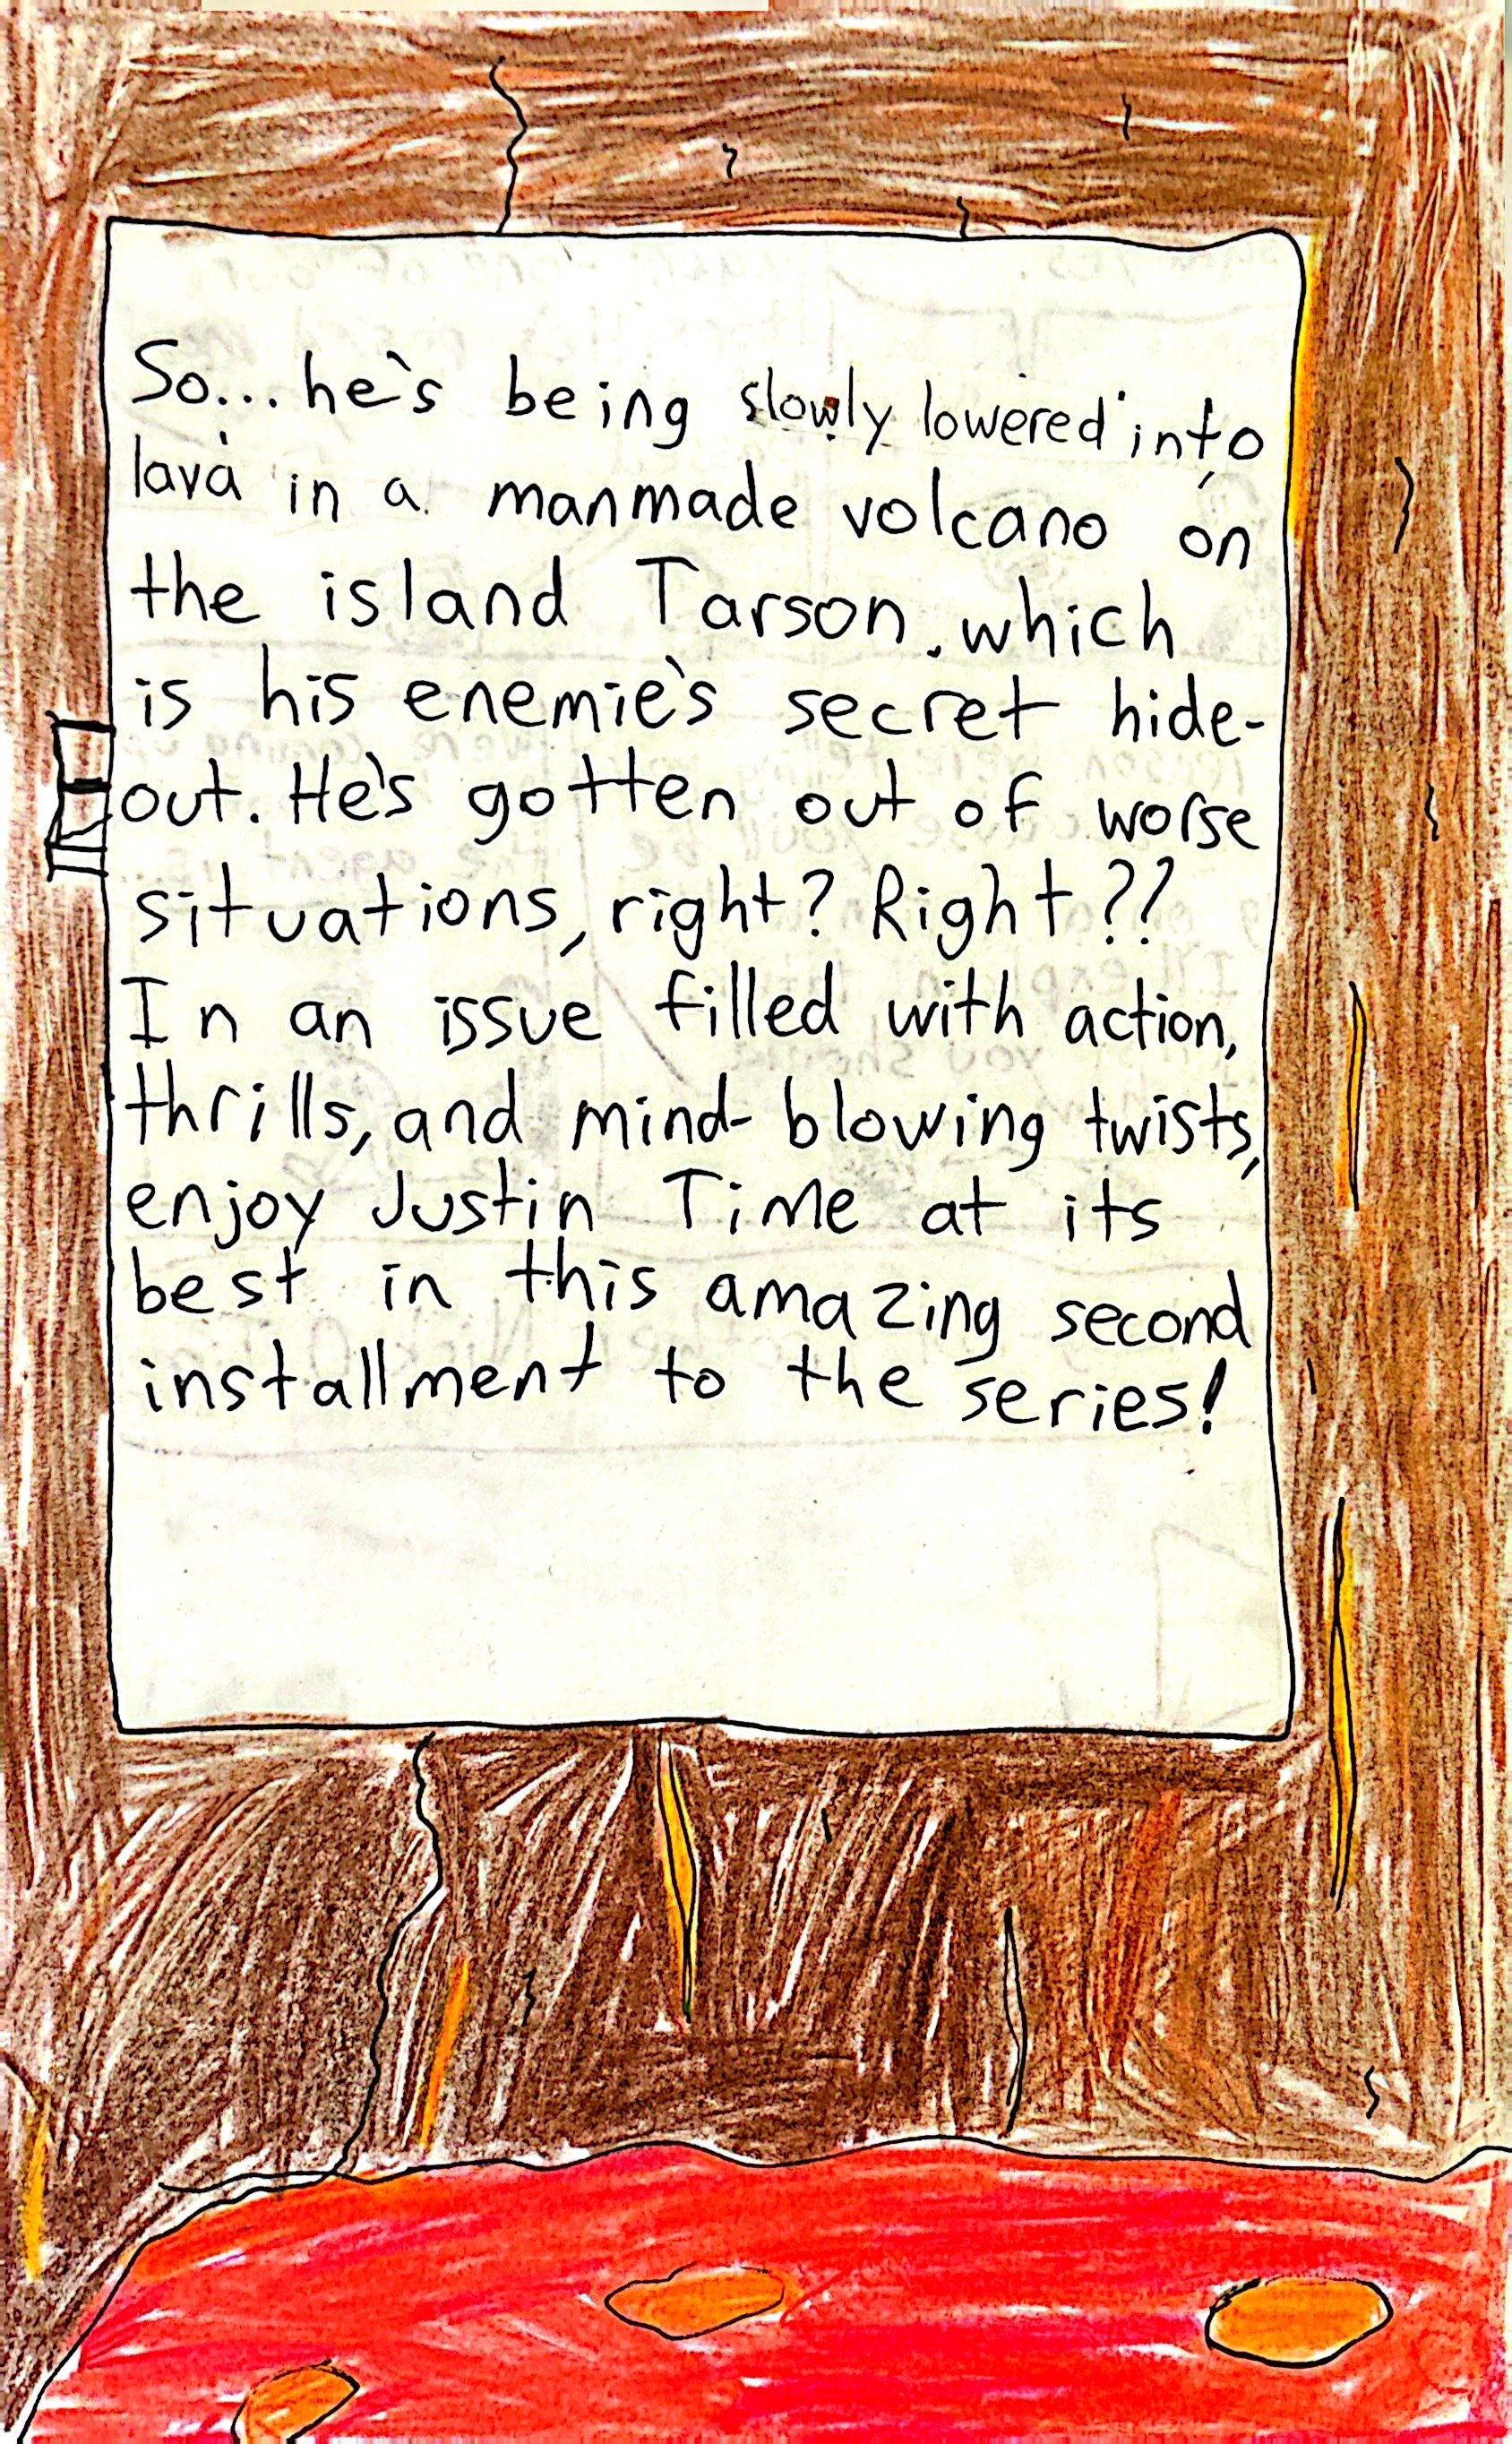 So... he's being slowly lowered into
lava in a manmade volcano on
the island Tarson, which
is his enemie's secret hide-
out. He's gotten out of worse
situations, right? Right??
In an issue filled with action,
thrills, and mind-blowing twists,
enjoy Justin Time at its
best in this amazing second
installment to the series!